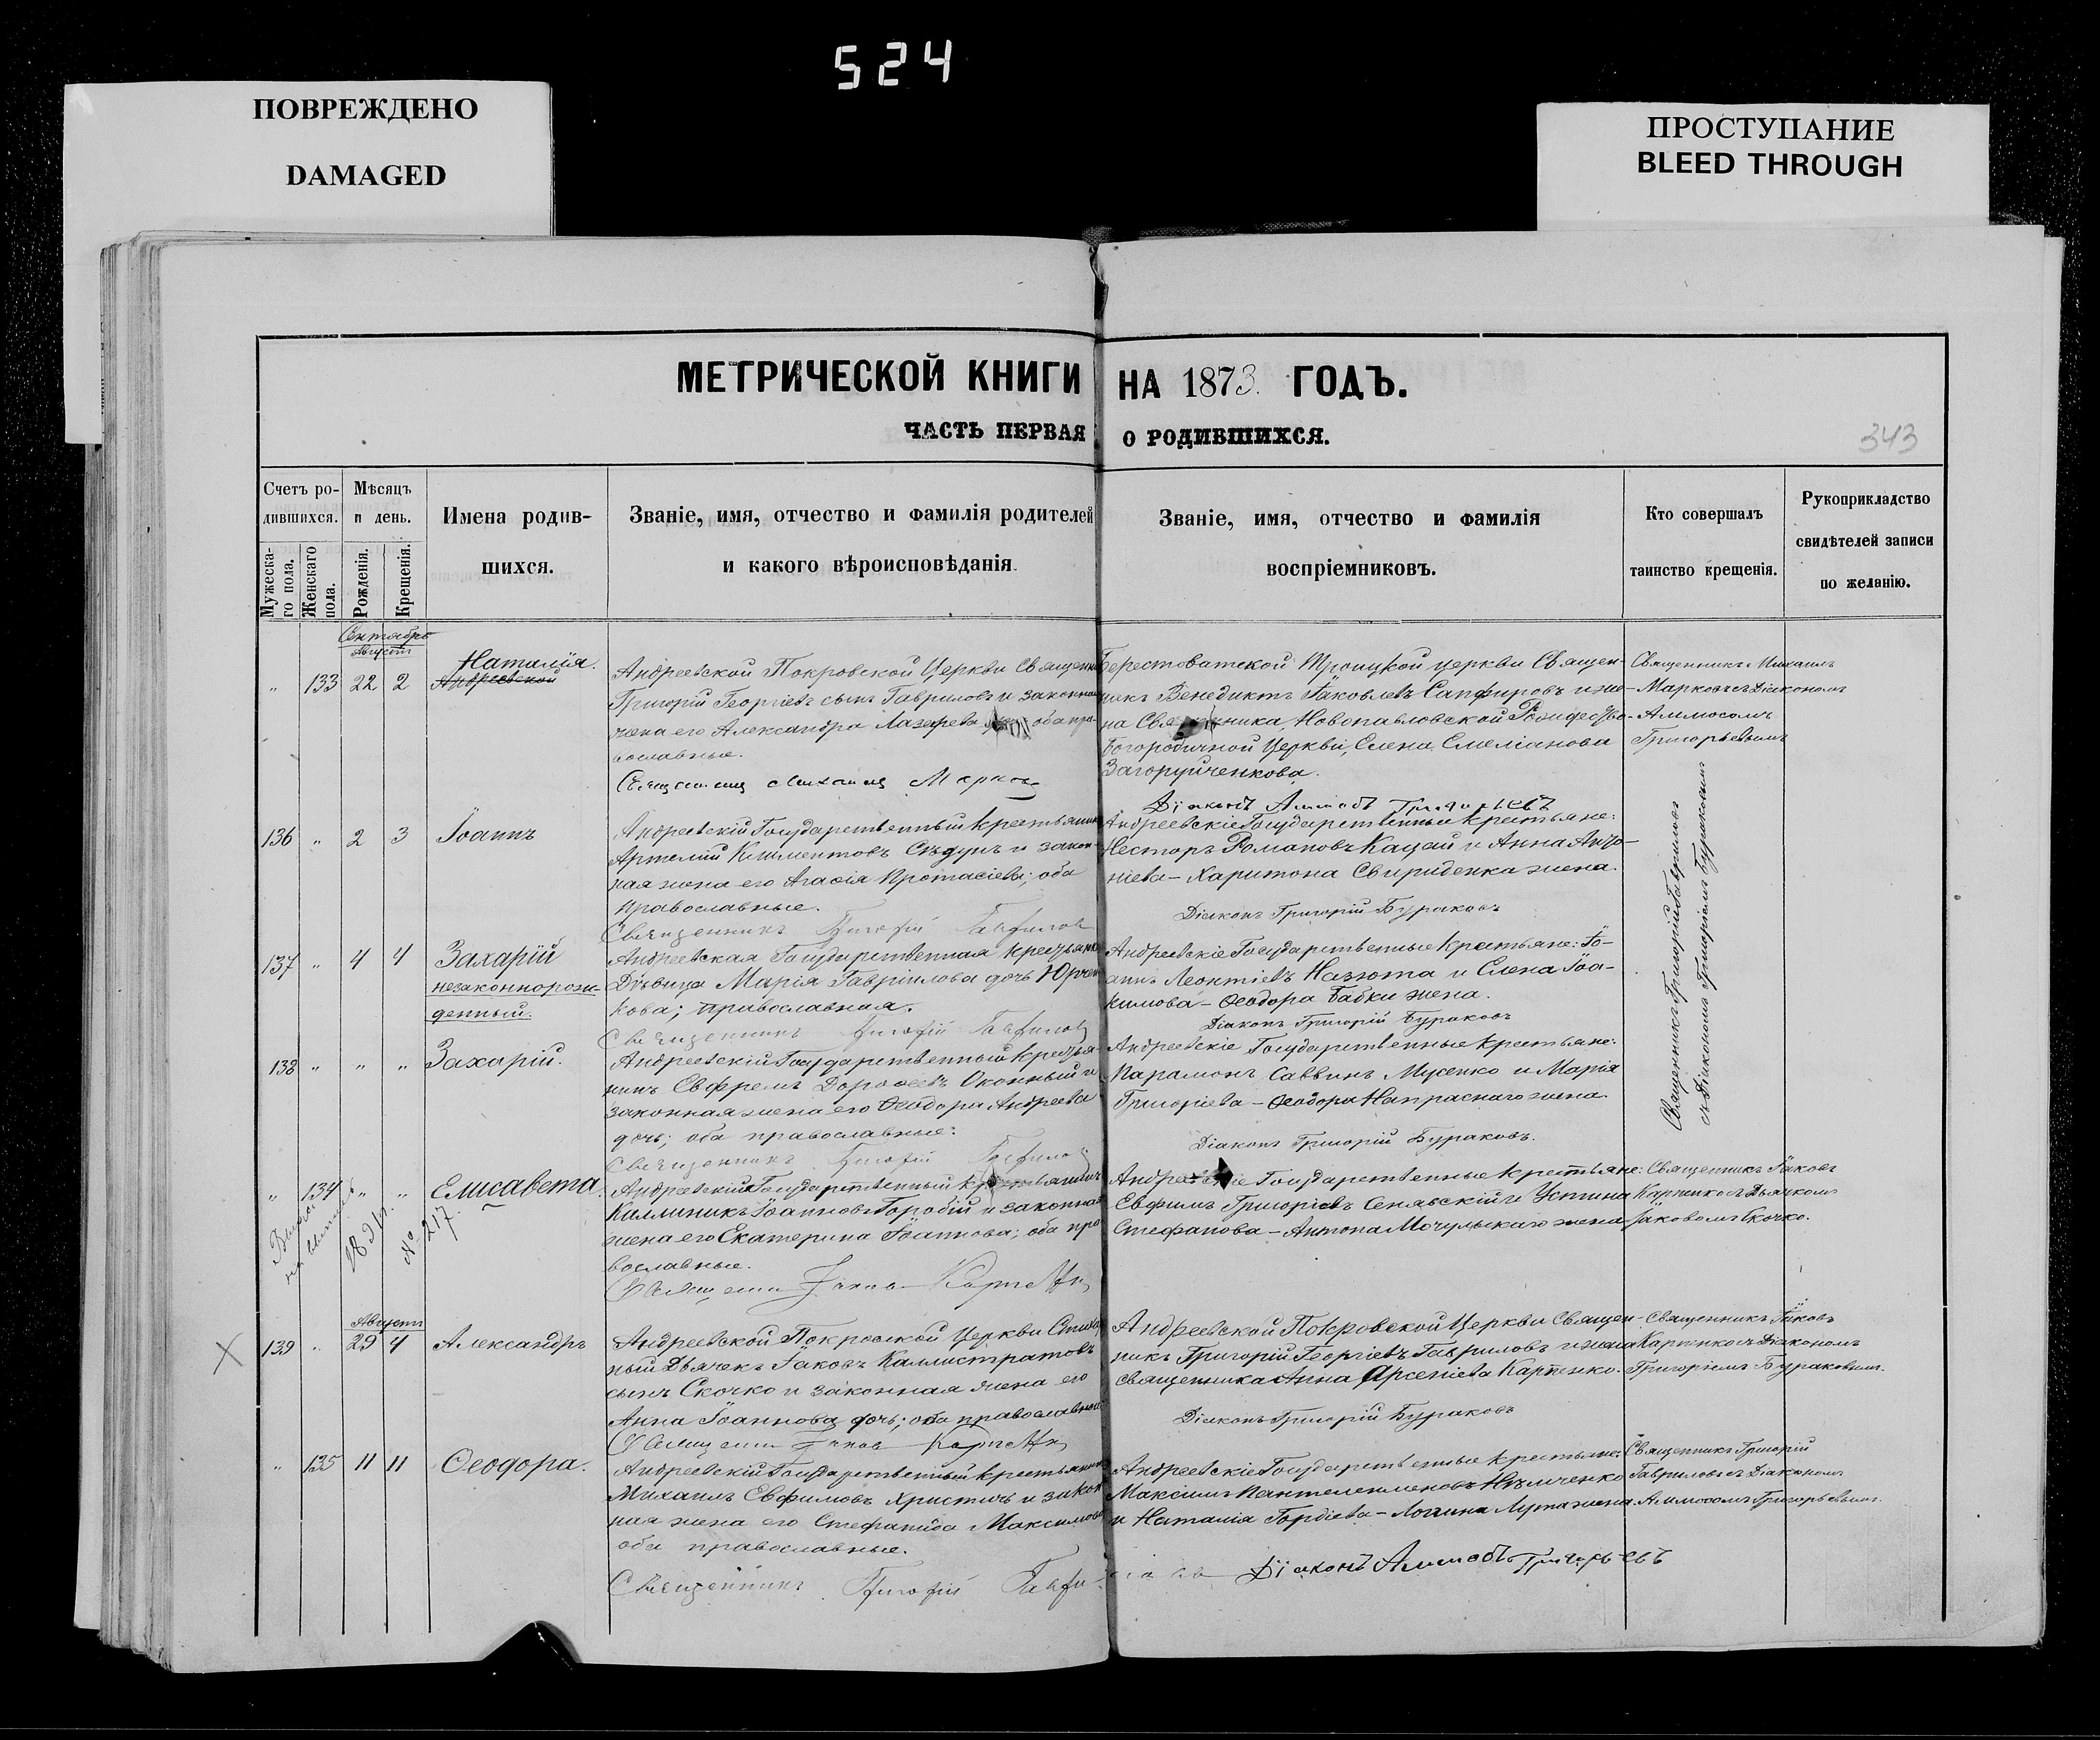 524
ПОВРЕЖДЕНО
DAMAGED
ПРОСТУПАНИЕ
BLEED THROUGH
МЕТРИЧЕСКОЙ КНИГИ НА 1873. ГОДЪ.
ЧАСТЬ ПЕРВАЯ О РОДИВШИХСЯ.
343
Счетъ ро-
дившихся.
Мужеска-
го пола.
Женскаго
пола.
Мѣсяцъ
и день.
Рожденія.
Крещенія.
Имена родив-
шихся.
Званіе, имя, отчество и фамилія родителей
и какого вѣроисповѣданія.
Званіе, имя, отчество и фамилія
воспріемниковъ.
Кто совершалъ
таинство крещенія.
Рукоприкладство
свидѣтелей записи
по желанію.
Сентябрь
Августъ
„ 133 22 2
Наталія.
Андреевской
Андреевской Покровской Церкви Священн
Григорій Георгіевъ сынъ Гавриловъ и законная
жена его Александра Лазарева оба пра-
вославные.
Священникъ Михаилъ Марков
Берестоватской Троицкой церкви Священ-
никъ Венедиктъ Іаковлевъ Сапфировъ и же-
на Священника Новопавловской Рождество-
Богородичной Церкви, Елена Емеліанова
Загоруйченкова.
Діаконъ Аммосъ Григорьевъ
Священникъ Михаилъ
Марковъ съ Діакономъ
Аммосомъ
Григорьевымъ
136 „ 2 3
Іоаннъ
Андреевскій Государственный крестьянин
Артемій Климентовъ Съдунъ и закон-
ная жена его Агафія Протасіева; оба
православные.
Священникъ Григорій Гаврилов
Андреевскіе Государственные крестьяне:
Несторъ Романовъ Кацай и Анна Анто-
ніева – Харитона Свириденка жена.
Діаконъ Григорій Бураковъ
137 „ 4 4
Захарій
незаконнорож-
денный.
Андреевская Государственная крестьянка
Дѣвица Марія Гавріилова дочь Юрчен
кова; православная.
Священникъ Григорій Гаврилов
Андреевскіе Государственные крестьяне: Іо-
аннъ Леонтіевъ Назюта и Елена Іоа-
кимова – Ѳеодора Бабки жена.
Діаконъ Григорій Бураковъ
138 „ „ „
Захарій.
Андреевскій Государственный крестья-
нинъ Ефремъ Дороѳеевъ Оконный и
законная жена его Ѳеодора Андреева
дочь; оба православные:
Священникъ Григорій Гаврилов
Андреевскіе Государственные крестьяне:
Парамонъ Саввинъ Мусенко и Марія
Григоріева – Ѳеодора Напраснаго жена.
Діаконъ Григорій Бураковъ.
Священникъ Григорій Гавриловъ
съ Діакономъ Григоріемъ Бураковымъ
„ 134 „ „
1891.
№ 217
Елисавета.
Андреевскій Государственный крестьянинъ
Каллиникъ Іоанновъ Горобій и законная
жена его Екатерина Іоаннова; оба пра
вославные.
Андреевскіе Государственные крестьяне:
Евфимъ Григоріевъ Сенявскій и Устина
Стефанова – Антона Мочульскаго жена
Священникъ Іаковъ
Карпенко съ Дьячкомъ
Іаковомъ Скочко.
Августъ
139 „ 29 4
Александръ
Андреевской Покровской Церкви Стихар
ный Дьячекъ Іаковъ Каллистратовъ
сынъ Скочко и законная жена его
Анна Іоаннова дочь; оба православные
Андреевской Покровской Церкви Священ-
никъ Григорій Георгіевъ Гавриловъ и жена
священника Анна Арсеніева Карпенко.
Діаконъ Григорій Бураковъ
Священникъ Іаковъ
Карпенко съ Діакономъ
Григоріемъ Бураковымъ.
„ 135 11 11
Ѳеодора.
Андреевскій Государственный крестьянин
Михаилъ Евфимовъ Христичъ и закон
ная жена его Стефанида Максимова
оба православные.
Священникъ Григорій Гаврилов
Андреевскіе Государственные крестьяне:
Максимъ Пантелеимоновъ Нъмченко
и Наталія Гордіева – Логина Лута жена.
Діаконъ Аммосъ Григорьевъ
Священникъ Григорій
Гавриловъ съ Діакономъ
Аммосомъ Григорьевымъ.